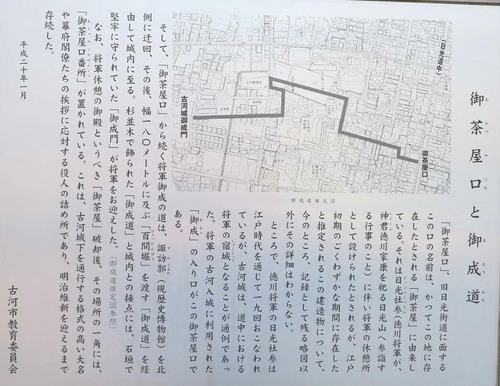 御茶屋口と御成道
「御茶屋口」、旧日光街道に面する
この口の名前は、かつてこの地に存
在したとされる「御茶屋」に由来し
ている。それは日光社参(徳川将軍が、
神君徳川家康を祀る日光山へ参詣す
る行事のこと)に伴い将軍の休憩所
として設けられたとされるが、江戸
初期のごくわずかな期間に存在した
と推定されるこの建造物について、
今のところ、記録として残る略図以
外にその詳細はわからない。
ところで、徳川将軍の日光社参は
江戸時代を通じて一九回おこなわれ
ているが、古河城は、道中における
将軍の宿城となることが通例であっ
た。将軍の古河入城に利用された
「御成」の入り口がこの御茶屋口で
ある。
(日光道中)
御茶屋口
古河城御成門
御成道推定図
そして、「御茶屋口」から続く将軍御成の道は、諏訪郭(現歴史博物館)を北
側に迂回、その後、幅一八〇メートルに及ぶ「百間堀」を渡す「御成道」を経
由して城内に至る。杉並木で飾られた「御成道」と城内との接点には、石垣で
堅牢に守られていた「御成門」が将軍をお迎えした。(御成道推定図参照)
なお、将軍休憩の御殿というべき「御茶屋」破却後、その場所の一角には、
「御茶屋口番所」が置かれている。これは、古河城下を通行する格式の高い大名
や幕府閣僚たちの挨拶に応対する役人の詰め所であり、明治維新を迎えるまで
存続した。
平成二十年一月
古河市教育委員会